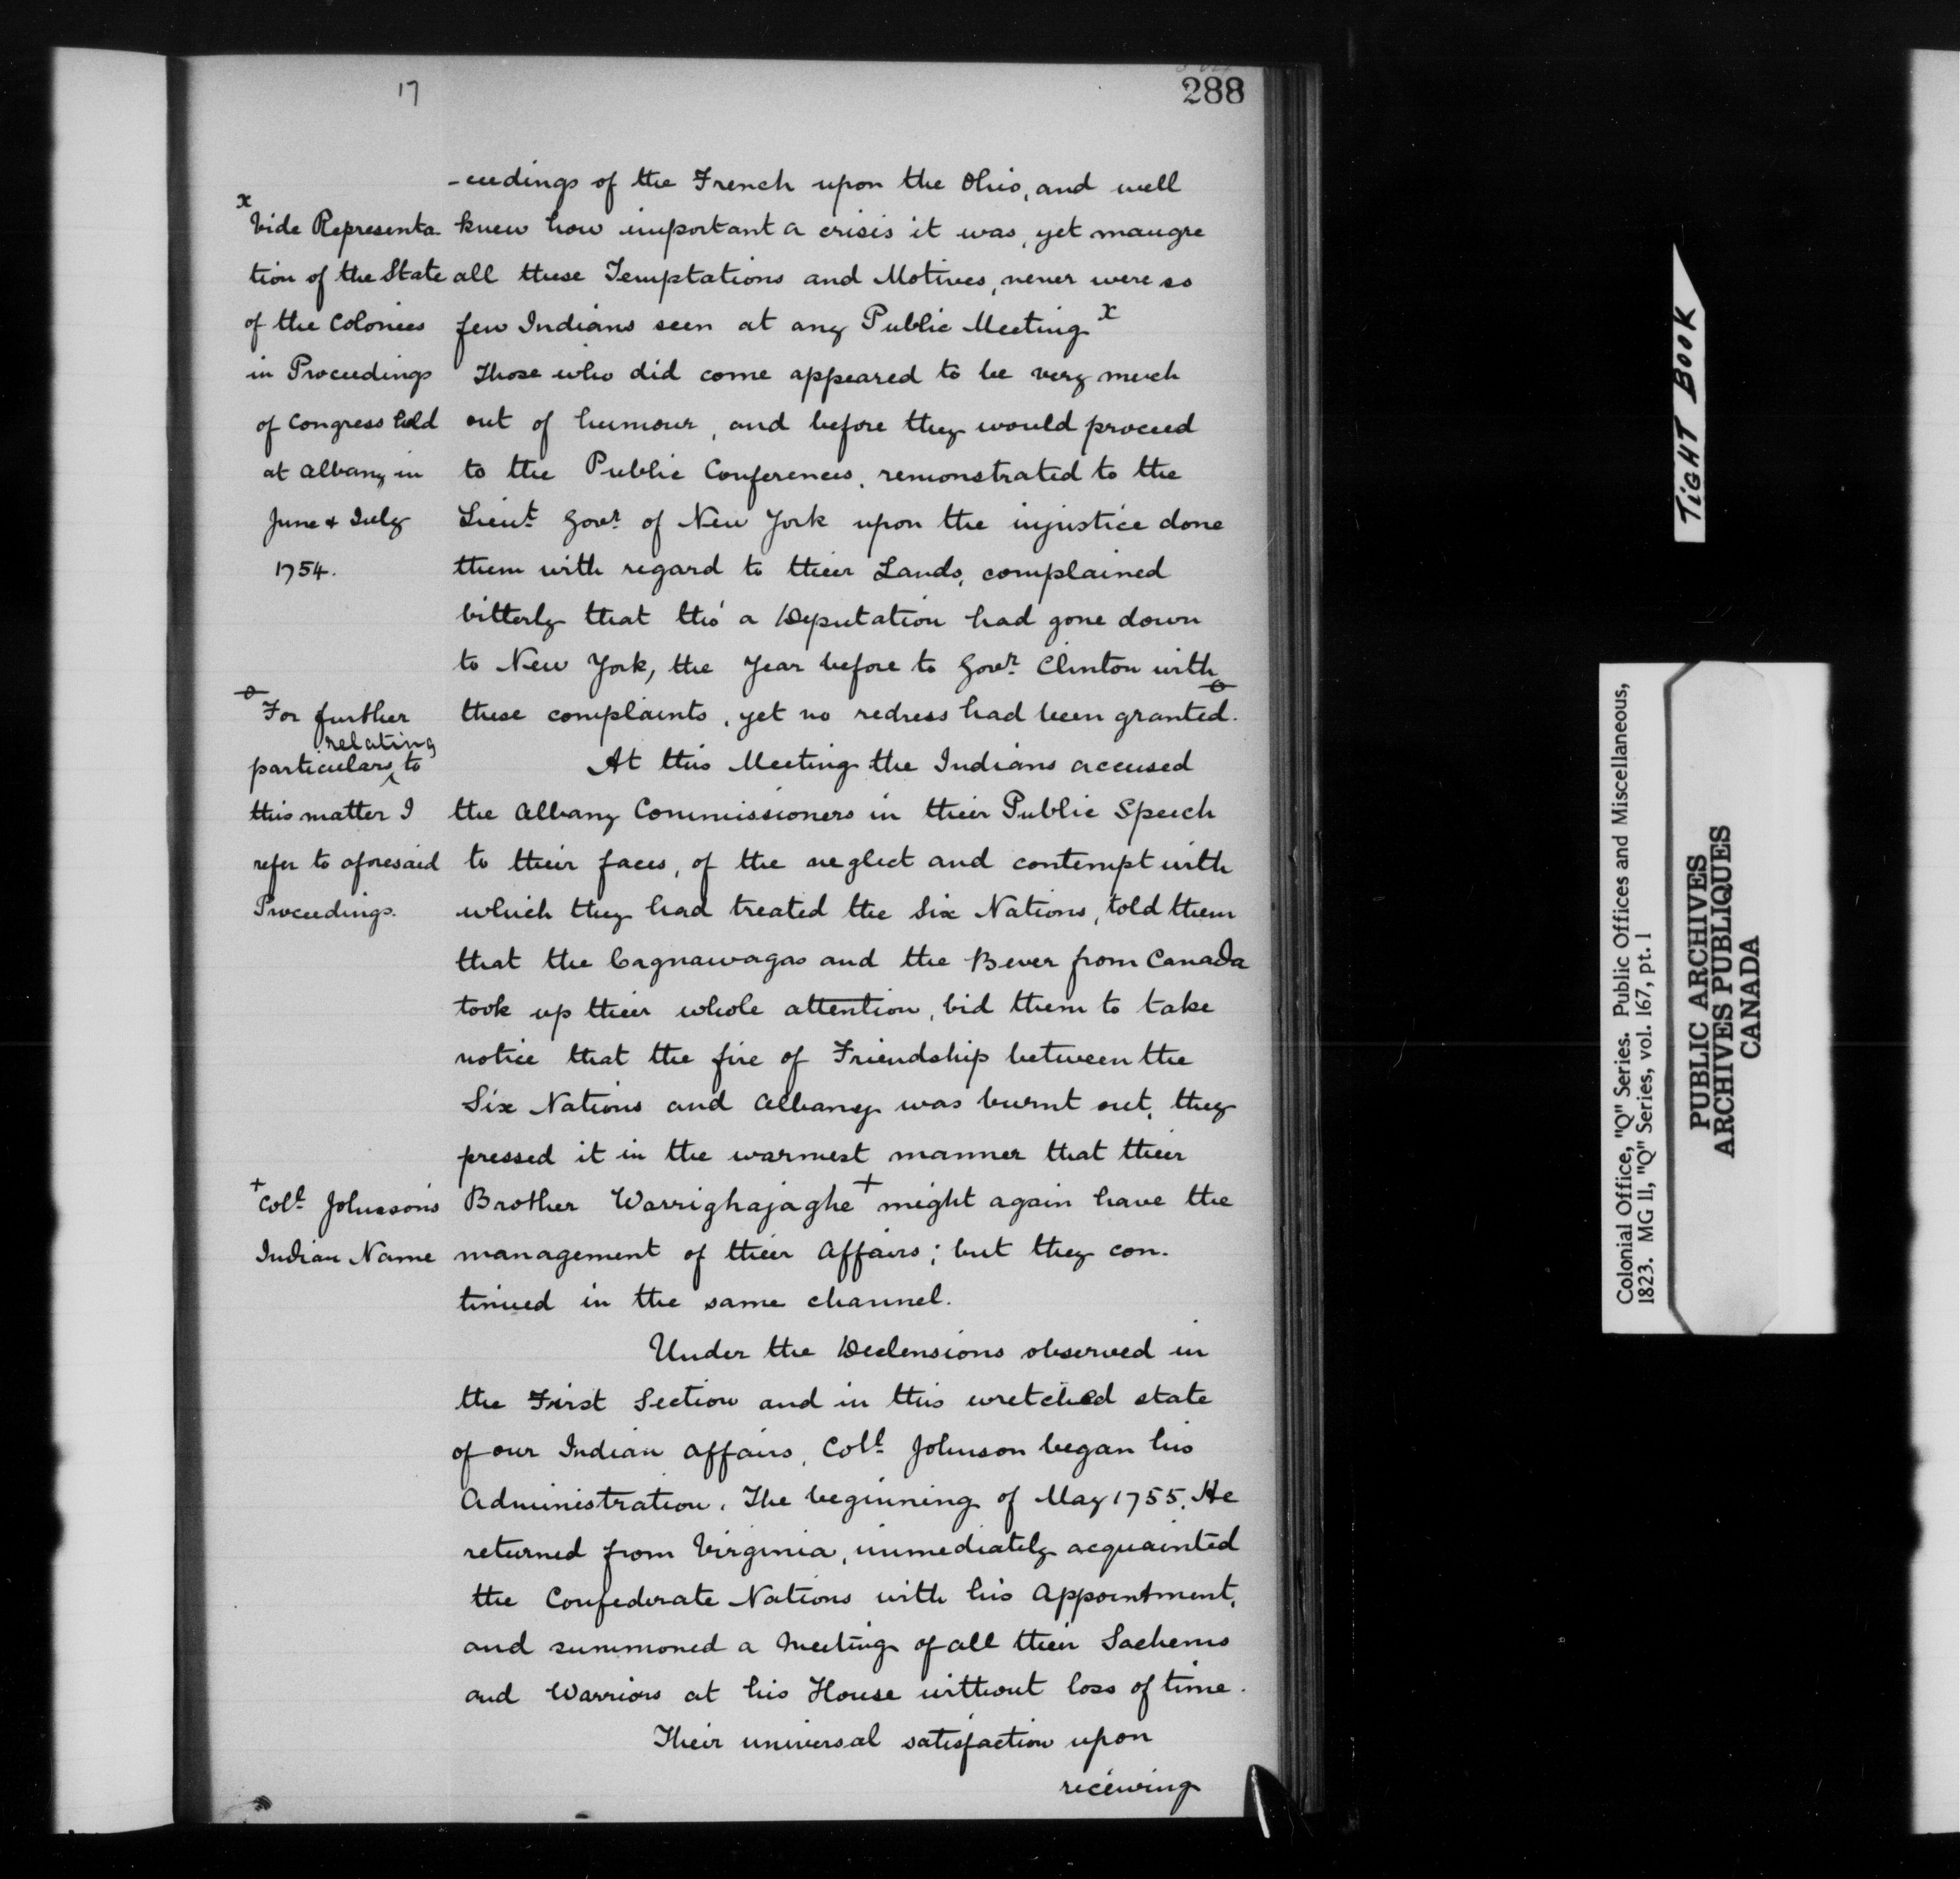 17
288
-ceedings of the French upon the Ohio, and well
knew how important a crisis it was, yet maugre
all these Temptations and Motives, never were so
few Indians seen at any Public Meeting x
Those who did come appeared to be very much
out of humour, and before they would proceed
to the Public Conferences, remonstrated to the
Lieut. Govr. of New York upon the injustice done
them with regard to their Lands, complained
bitterly that tho' a Deputation had gone down
to New York, the Year before to Govr. Clinton with
these complaints, yet no redress had been granted. o
At this Meeting the Indians accused
the Albany Commissioners in their Public Speech
to their faces, of the neglect and contempt with
which they had treated the Six Nations, told them
that the Cagnawagas and the Bever from Canada
took up their whole attention, bid them to take
notice that the fire of Friendship between the
Six Nations and Albany was burnt out, they
pressed it in the warmest manner that their
Brother Warrighajaghe + might again have the
management of their Affairs; but they con-
tinued in the same channel.
Under the Declensions observed in
the First Section and in this wretched state
of our Indian affairs, Coll. Johnson began his
Administration. The beginning of May 1755. He
returned from Virginia, immediately acquainted
the Confederate Nations with his Appointment,
and summoned a Meeting of all their Sachems
and Warriors at his House without loss of time.
Their universal satisfaction upon
receiving
x
Vide Representa-
tion of the State
of the Colonies
in Proceedings
of Congress held
at Albany in
June & July
1754.
o
For further
relating
particulars ^ to
this matter I
refer to aforesaid
Proceedings.
+
Coll. Johnson's
Indian Name
TiGHT BOOK
Colonial Office, "Q" Series. Public Offices and Miscellaneous,
1823. MG 11, "Q" Series, vol. 167, pt. 1
PUBLIC ARCHIVES
ARCHIVES PUBLIQUES
CANADA